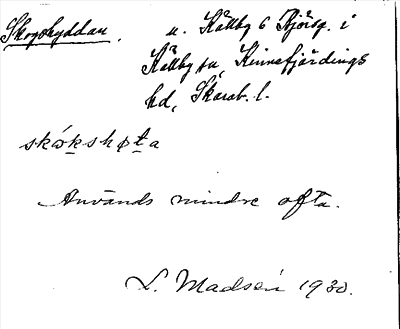 Skogshyddan. u. Källby 6 Tjörsg. i
Källby sn, Kinnefjärdings
hd, Skarab. l.
skɷkshøta
Används mindre ofta.
L. Madsén 1930.